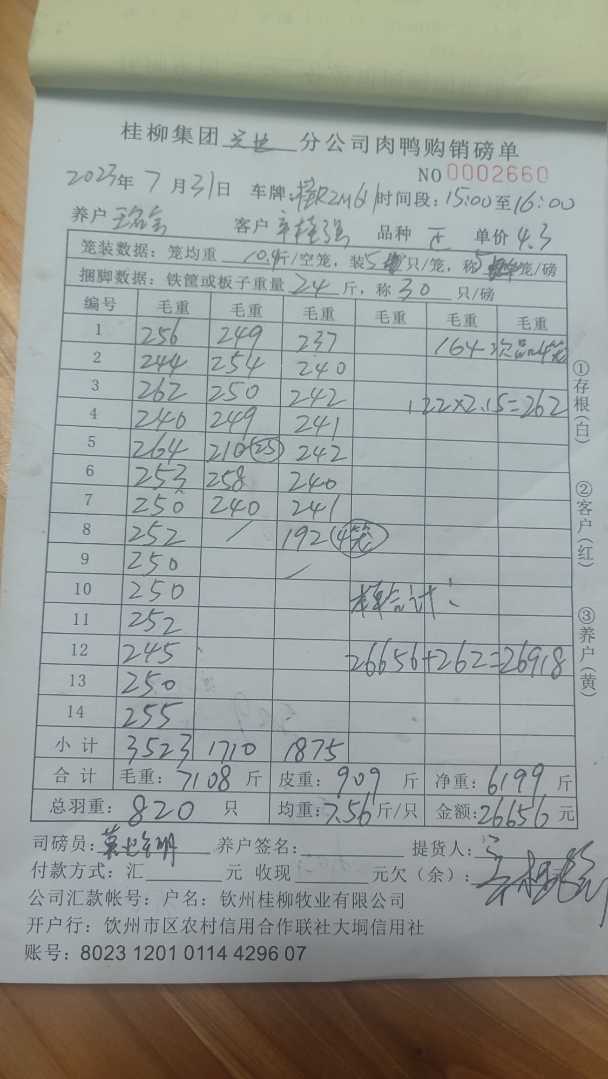 桂柳集团 分公司肉鸭购销磅单
NO 0002660
2023年 7 月 31日 车牌: 桂R2M61 时间段: 15:00至16:00
养户 客户 品种 单价 4.3
笼装数据: 笼均重 10.1斤/空笼, 装 5 只/笼, 称 5 笼/磅
捆脚数据: 铁筐或板子重量 24 斤, 称 30 只/磅
编号 毛重 毛重 毛重 毛重 毛重 毛重
1 256 249 237 164
2 244 254 240
3 262 250 242 122×2.15=262
4 240 249 241
5 264 210 (25) 242
6 253 258 240
7 250 240 241
8 252 / 192 (4笼)
9 250 /
10 250 合计:
11 252
12 245 26656+262=26918
13 250
14 255
小计 3523 1710 1875
合计 毛重: 7108 斤 皮重: 909 斤 净重: 6199 斤
总羽重: 820 只 均重: 7.56 斤/只 金额: 26656 元
司磅员: 养户签名: 提货人:
付款方式: 汇 元 收现 元欠(余):
公司汇款帐号: 户名: 钦州桂柳牧业有限公司
开户行: 饮州市区农村信用合作联社大垌信用社
账号: 8023 1201 0114 4296 07
①存根(白)
②客户(红)
③养户(黄)